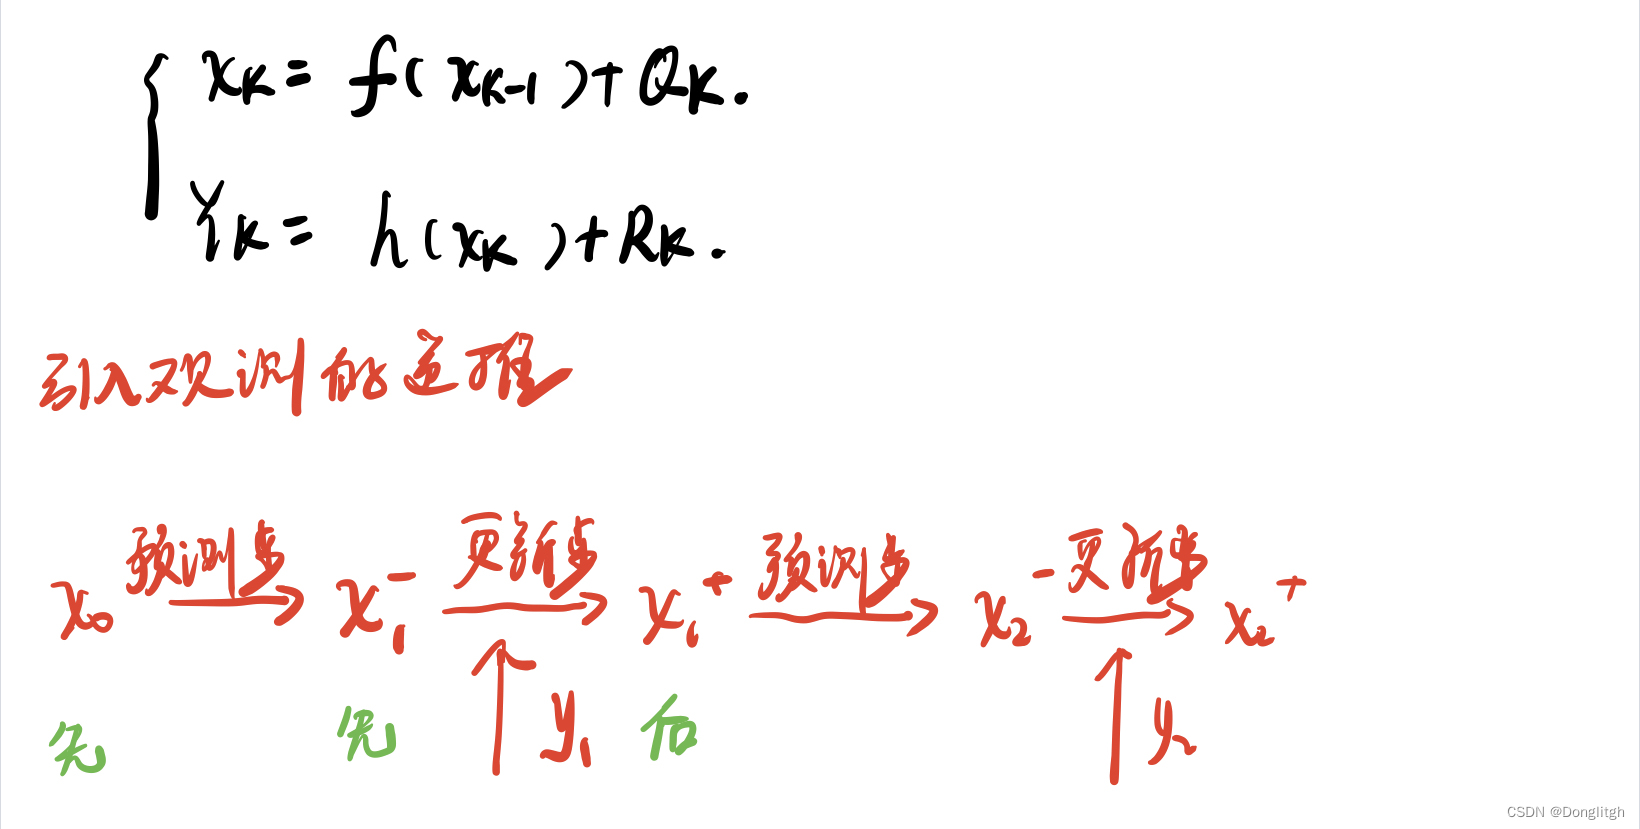 xₖ = f(xₖ₋₁) + Qₖ.
Yₖ = h(xₖ) + Rₖ.
引入观测的递推
x₀ 预测步 → x₁⁻ 更新步 → x₁⁺ 预测步 → x₂⁻ 更新步 → x₂⁺
先 先 ↑ y₁ 后 ↑ y₂
CSDN @Donglitgh